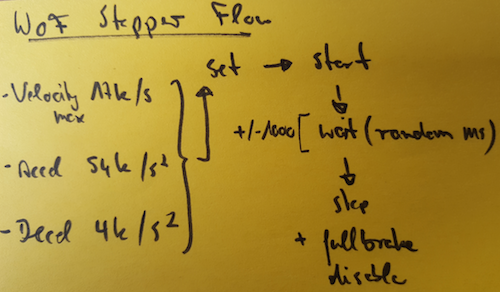 WoF Stepper Flow
- Velocity 17k/s
max
- Accel 54k/s²
- Decel 4k/s²
set → start
+/-1000 [ wait (random ms)
stop
+ full brake
disable